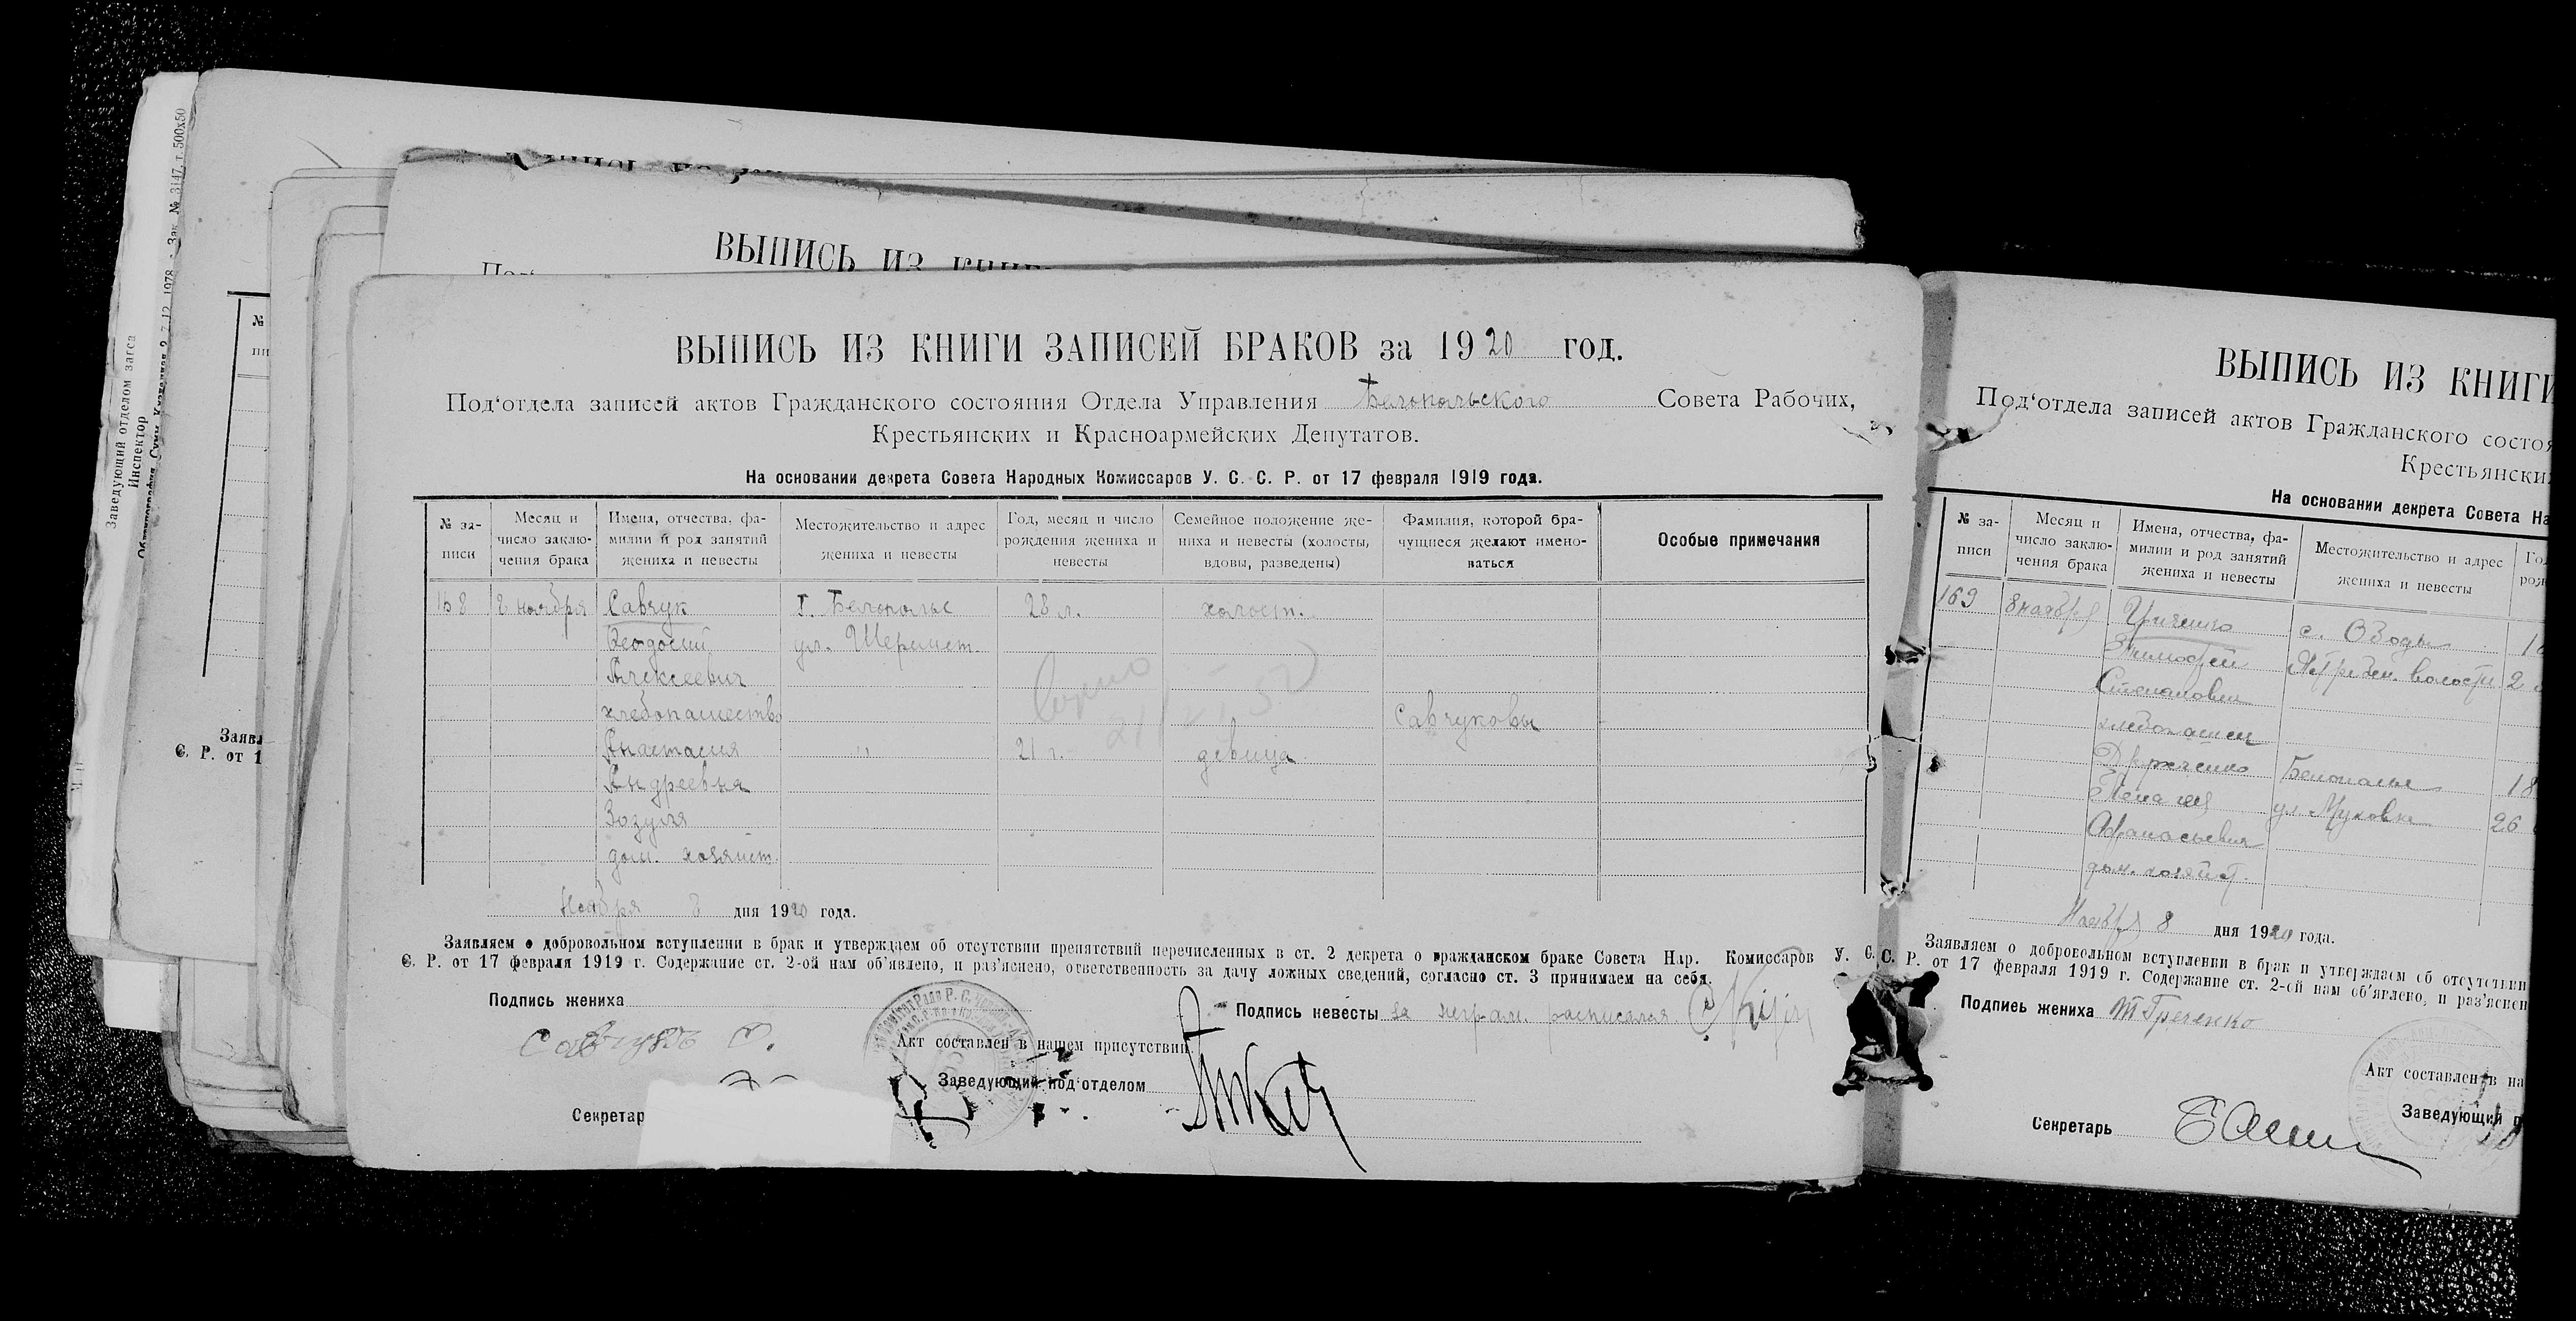 Заведующий отделом загса
Инспектор
Зак. № 3147, т. 500х50
№
пи
Заявл
С. Р. от 1
ВЫПИСЬ ИЗ
ВЫПИСЬ ИЗ КНИГИ ЗАПИСЕЙ БРАКОВ за 1920 год.
Под‘отдела записей актов Гражданского состояния Отдела Управления Белопольского Совета Рабочих,
Крестьянских и Красноармейских Депутатов.
На основании декрета Совета Народных Комиссаров У. С. С. Р. от 17 февраля 1919 года.
№ за-
писи
Месяц и
число заклю-
чения брака
Имена, отчества, фа-
милии и род занятий
жениха и невесты
Местожительство и адрес
жениха и невесты
Год, месяц и число
рождения жениха и
невесты
Семейное положение же-
ниха и невесты (холосты,
вдовы, разведены)
Фамилия, которой бра-
чущиеся желают имено-
ваться
Особые примечания
168 8 ноября Савчук г. Белополье 28 л. холост.
Феодосий ул. Шеремет.
Алексеевич
хлебопашество Савчуковы
Анастасия " 21 г. девица
Андреевна
Зозуля
дом. хозяйст.
Ноября 8 дня 1920 года.
Заявляем о добровольном вступлении в брак и утверждаем об отсутствии препятствий перечисленных в ст. 2 декрета о гражданском браке Совета Нар. Комиссаров У. С.
С. Р. от 17 февраля 1919 г. Содержание ст. 2-ой нам об‘явлено, и раз‘яснено, ответственность за дачу ложных сведений, согласно ст. 3 принимаем на себя.
Подпись жениха
Савчукъ Ф.
Подпись невесты за неграм. расписался
Акт составлен в нашем присутствии
Заведующий под‘отделом
Секретар
ВЫПИСЬ ИЗ КНИГИ
Под‘отдела записей актов Гражданского состоя
Крестьянски
На основании декрета Совета На
№ за-
писи
Месяц и
число заклю-
чения брака
Имена, отчества, фа-
милии и род занятий
жениха и невесты
Местожительство и адрес
жениха и невесты
Го
рож
169 8 ноября Гриченко с.
Тимофей волости 2
Степанович
хлебопашец
Белополье 18
ул. 26
Афанасьевна
дом. хозяйст.
Ноября 8 дня 1920 года.
Заявляем о добровольном вступлении в брак и утверждаем об отсутствии
С. Р. от 17 февраля 1919 г. Содержание ст. 2-ой нам об‘явлено, и раз‘яснен
Подпись жениха Т Греченко
Акт составлен в на
Заведующий п
Секретарь